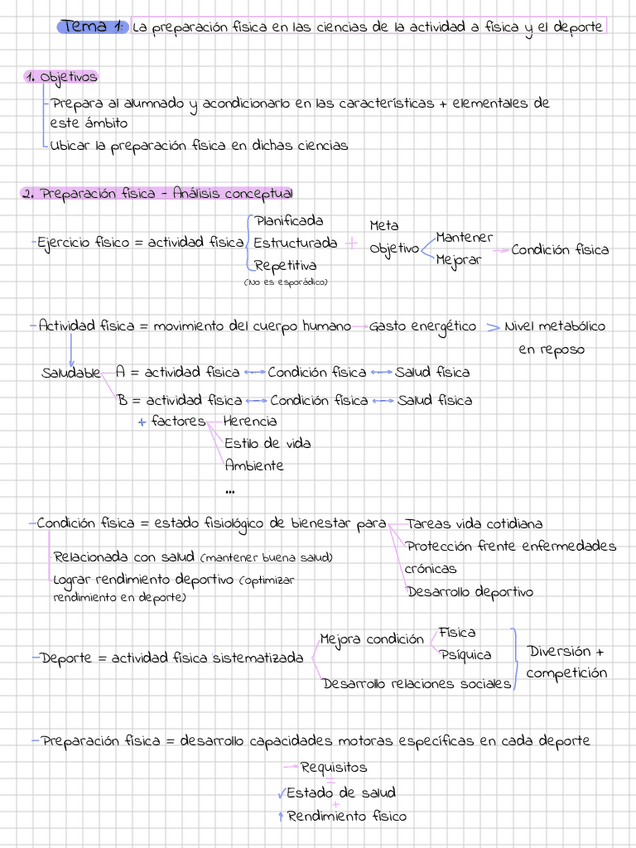 Tema 1: La preparación física en las ciencias de la actividad a física y el deporte
1. Objetivos
-Prepara al alumnado y acondicionarlo en las características + elementales de
este ámbito
-Ubicar la preparación física en dichas ciencias
2. Preparación física - Análisis conceptual
-Ejercicio físico = actividad física
Planificada
Estructurada
Repetitiva
(No es esporádico)
+
Meta
Objetivo
Mantener
Mejorar
Condición física
-Actividad física = movimiento del cuerpo humano → Gasto energético > Nivel metabólico
en reposo
Saludable
A = actividad física ↔ Condición física ↔ Salud física
B = actividad física ↔ Condición física ↔ Salud física
+ factores
Herencia
Estilo de vida
Ambiente
...
-Condición física = estado fisiológico de bienestar para
Tareas vida cotidiana
Protección frente enfermedades
crónicas
Desarrollo deportivo
Relacionada con salud (mantener buena salud)
Lograr rendimiento deportivo (optimizar
rendimiento en deporte)
-Deporte = actividad física sistematizada
Mejora condición
Física
Psíquica
Desarrollo relaciones sociales
Diversión +
competición
-Preparación física = desarrollo capacidades motoras específicas en cada deporte
→ Requisitos
=
✓Estado de salud
+
↑ Rendimiento físico